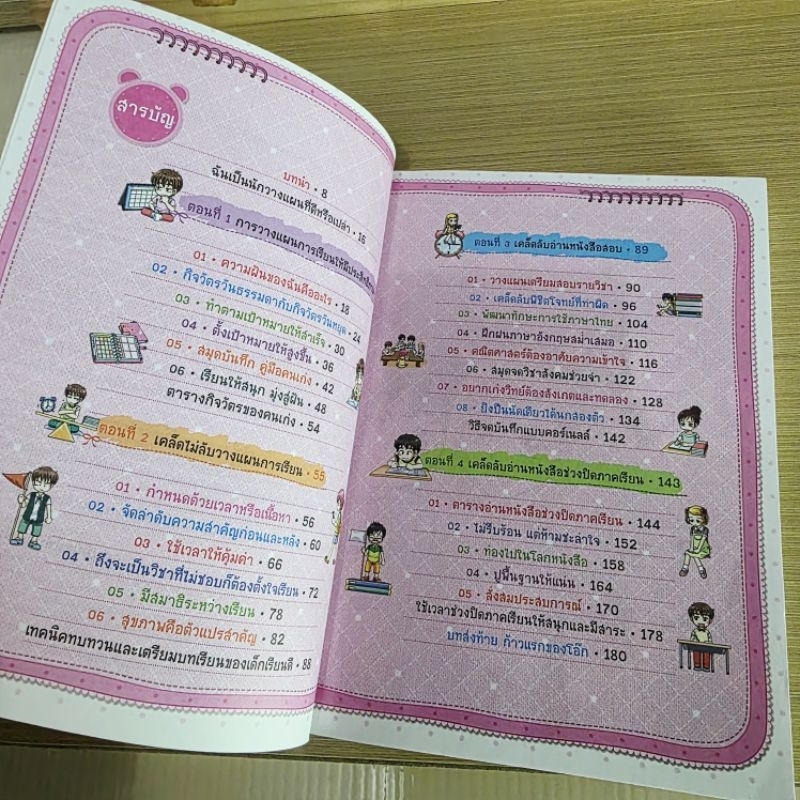 สารบัญ
บทนำ • 8
ฉันเป็นนักวางแผนที่ดีหรือเปล่า • 16
ตอนที่ 1 การวางแผนการเรียนให้มีประสิทธิ
01 • ความฝันของฉันคืออะไร • 18
02 • กิจวัตรวันธรรมดากับกิจวัตรวันหยุด • 24
03 • ทำตามเป้าหมายให้สำเร็จ • 30
04 • ตั้งเป้าหมายให้สูงขึ้น • 36
05 • สมุดบันทึก คู่มือคนเก่ง • 42
06 • เรียนให้สนุก มุ่งสู่ฝัน • 48
ตารางกิจวัตรของคนเก่ง • 54
ตอนที่ 2 เคล็ดไม่ลับวางแผนการเรียน • 55
01 • กำหนดด้วยเวลาหรือเนื้อหา • 56
02 • จัดลำดับความสำคัญก่อนและหลัง • 60
03 • ใช้เวลาให้คุ้มค่า • 66
04 • ถึงจะเป็นวิชาที่ไม่ชอบก็ต้องตั้งใจเรียน • 72
05 • มีสมาธิระหว่างเรียน • 78
06 • สุขภาพคือตัวแปรสำคัญ • 82
เทคนิคทบทวนและเตรียมบทเรียนของเด็กเรียนดี • 88
ตอนที่ 3 เคล็ดลับอ่านหนังสือสอบ • 89
01 • วางแผนเตรียมสอบรายวิชา • 90
02 • เคล็ดลับพิชิตโจทย์ที่ทำผิด • 96
03 • พัฒนาทักษะการใช้ภาษาไทย • 104
04 • ฝึกฝนภาษาอังกฤษสม่ำเสมอ • 110
05 • คณิตศาสตร์ต้องอาศัยความเข้าใจ • 116
06 • สมุดจดวิชาสังคมช่วยจำ • 122
07 • อยากเก่งวิทย์ต้องสังเกตและทดลอง • 128
08 • ยิงปืนนัดเดียวได้นกสองตัว • 134
วิธีจดบันทึกแบบคอร์เนลล์ • 142
ตอนที่ 4 เคล็ดลับอ่านหนังสือช่วงปิดภาคเรียน • 143
01 • ตารางอ่านหนังสือช่วงปิดภาคเรียน • 144
02 • ไม่รีบร้อน แต่ห้ามชะล่าใจ • 152
03 • ท่องไปในโลกหนังสือ • 158
04 • ปูพื้นฐานให้แน่น • 164
05 • สั่งสมประสบการณ์ • 170
ใช้เวลาช่วงปิดภาคเรียนให้สนุกและมีสาระ • 178
บทส่งท้าย ก้าวแรกของโอ๊ก • 180